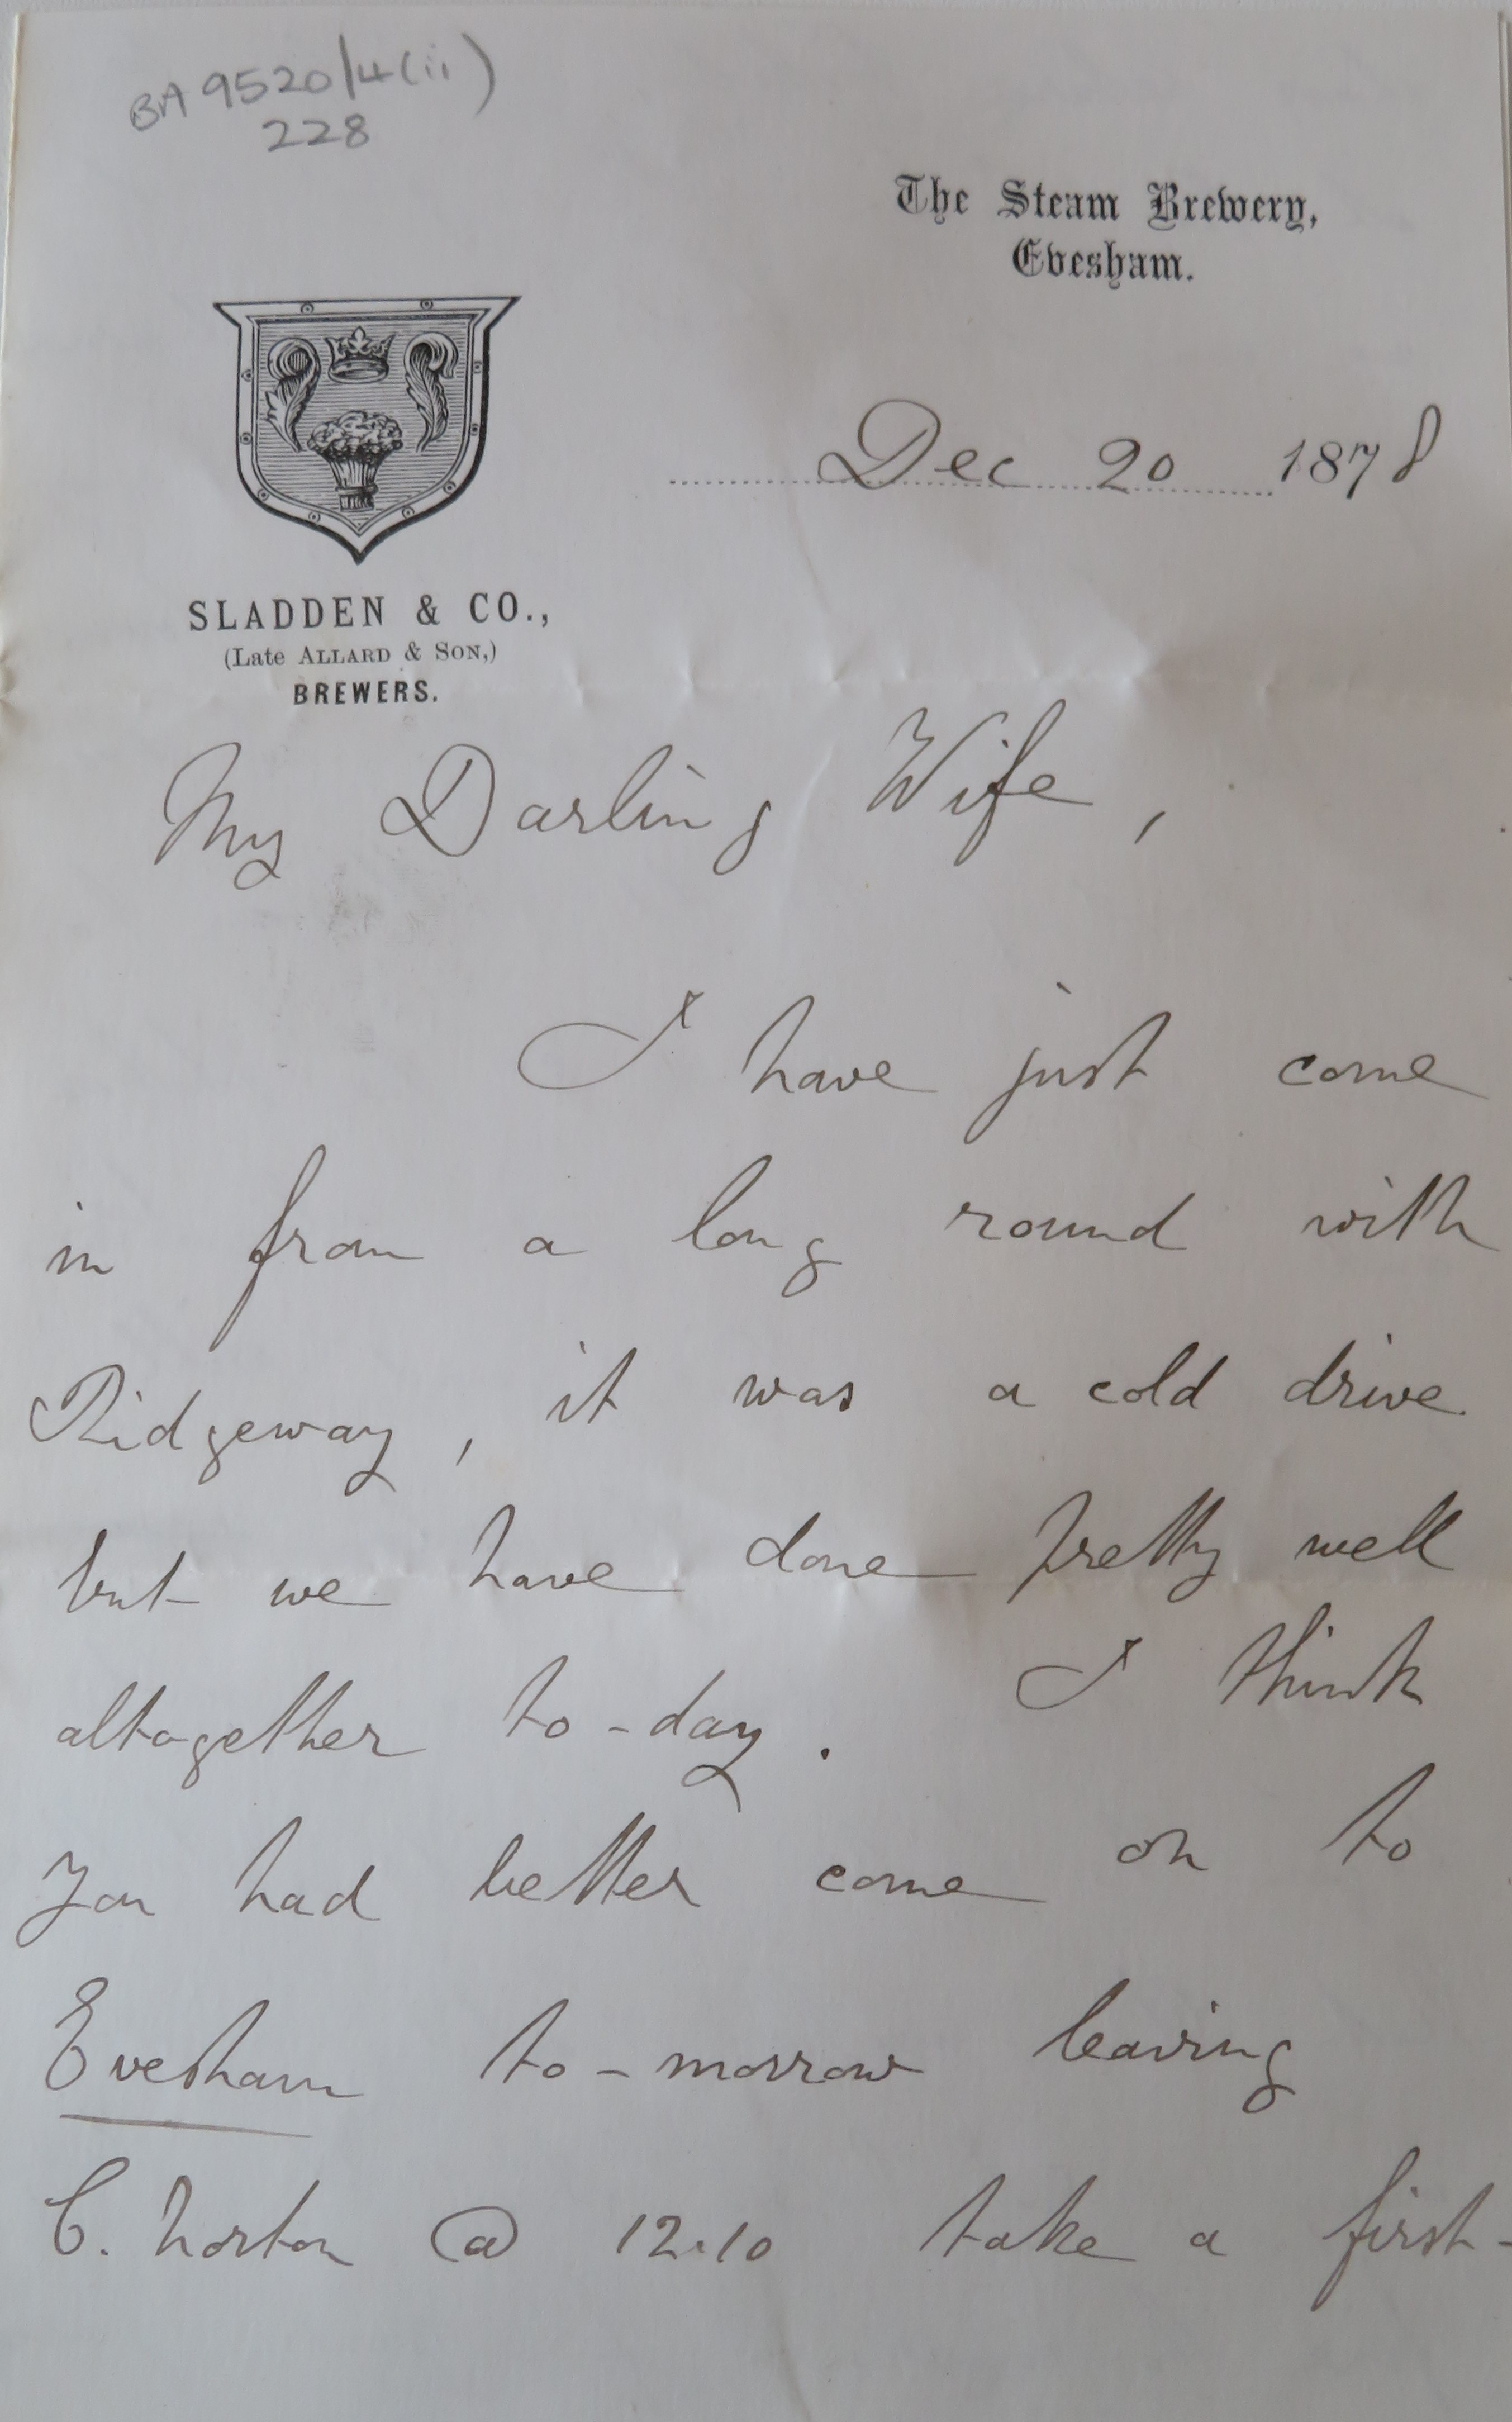 BA 9520/4(ii)
228
The Steam Brewery,
Evesham.
Dec 20 1878
SLADDEN & CO.,
(Late ALLARD & SON,)
BREWERS.
My Darling Wife,
I have just come
in from a long round with
Ridgeway, it was a cold drive
but we have done pretty well
altogether to-day. I think
you had better come on to
Evesham to-morrow leaving
C. Norton @ 12.10 take a first-